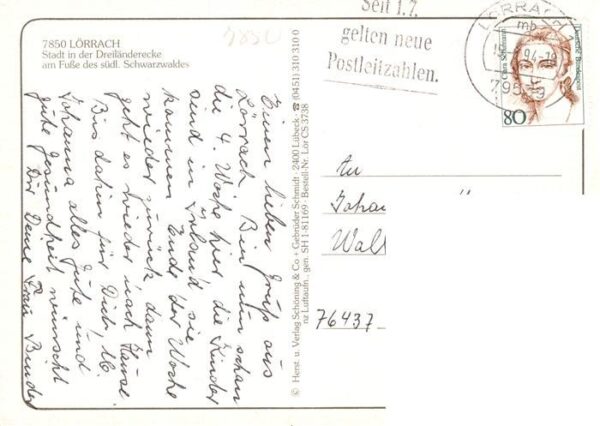 7850 LÖRRACH
Stadt in der Dreiländerecke
am Fuße des südl. Schwarzwaldes
7850
Seit 1.7.
gelten neue
Postleitzahlen.
LÖRRACH
mb
94-1
795
Deutsche Bundespost
80
Einen lieben Gruß aus
Lörrach Bin nun schon
die 4. Woche hier die Kinder
sind in Urlaub sie
kommen Ende der Woche
wieder zurück, dann
geht es wieder nach Hause.
Bis dahin für Dich, lb.
Johanna alles Gute und
gute Gesundheit wünscht
Dir Deine Frau Binder
© Herst. u. Verlag Schöning & Co + Gebrüder Schmidt · 2400 Lübeck · ☎ (0451) 310 310 0
nz Luftaufn., gen. SH 1-81169 · Bestell-Nr. Lör CS 3738
An
Johan
Wal
76437